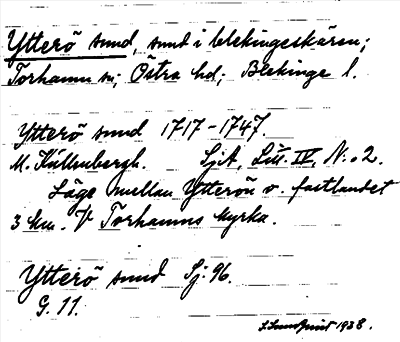 Ytterö sund, sund i blekingeskären;
Torhamn sn; Östra hd; Blekinge l.
Ytterö sund 1717-1747.
M. Källenbergh. SjA, Litt. IV, N:o 2.
Läge mellan Ytterön o. fastlandet
3 km. V Torhamns kyrka.
Ytterö sund Sj: 96.
G. 11.
1938.